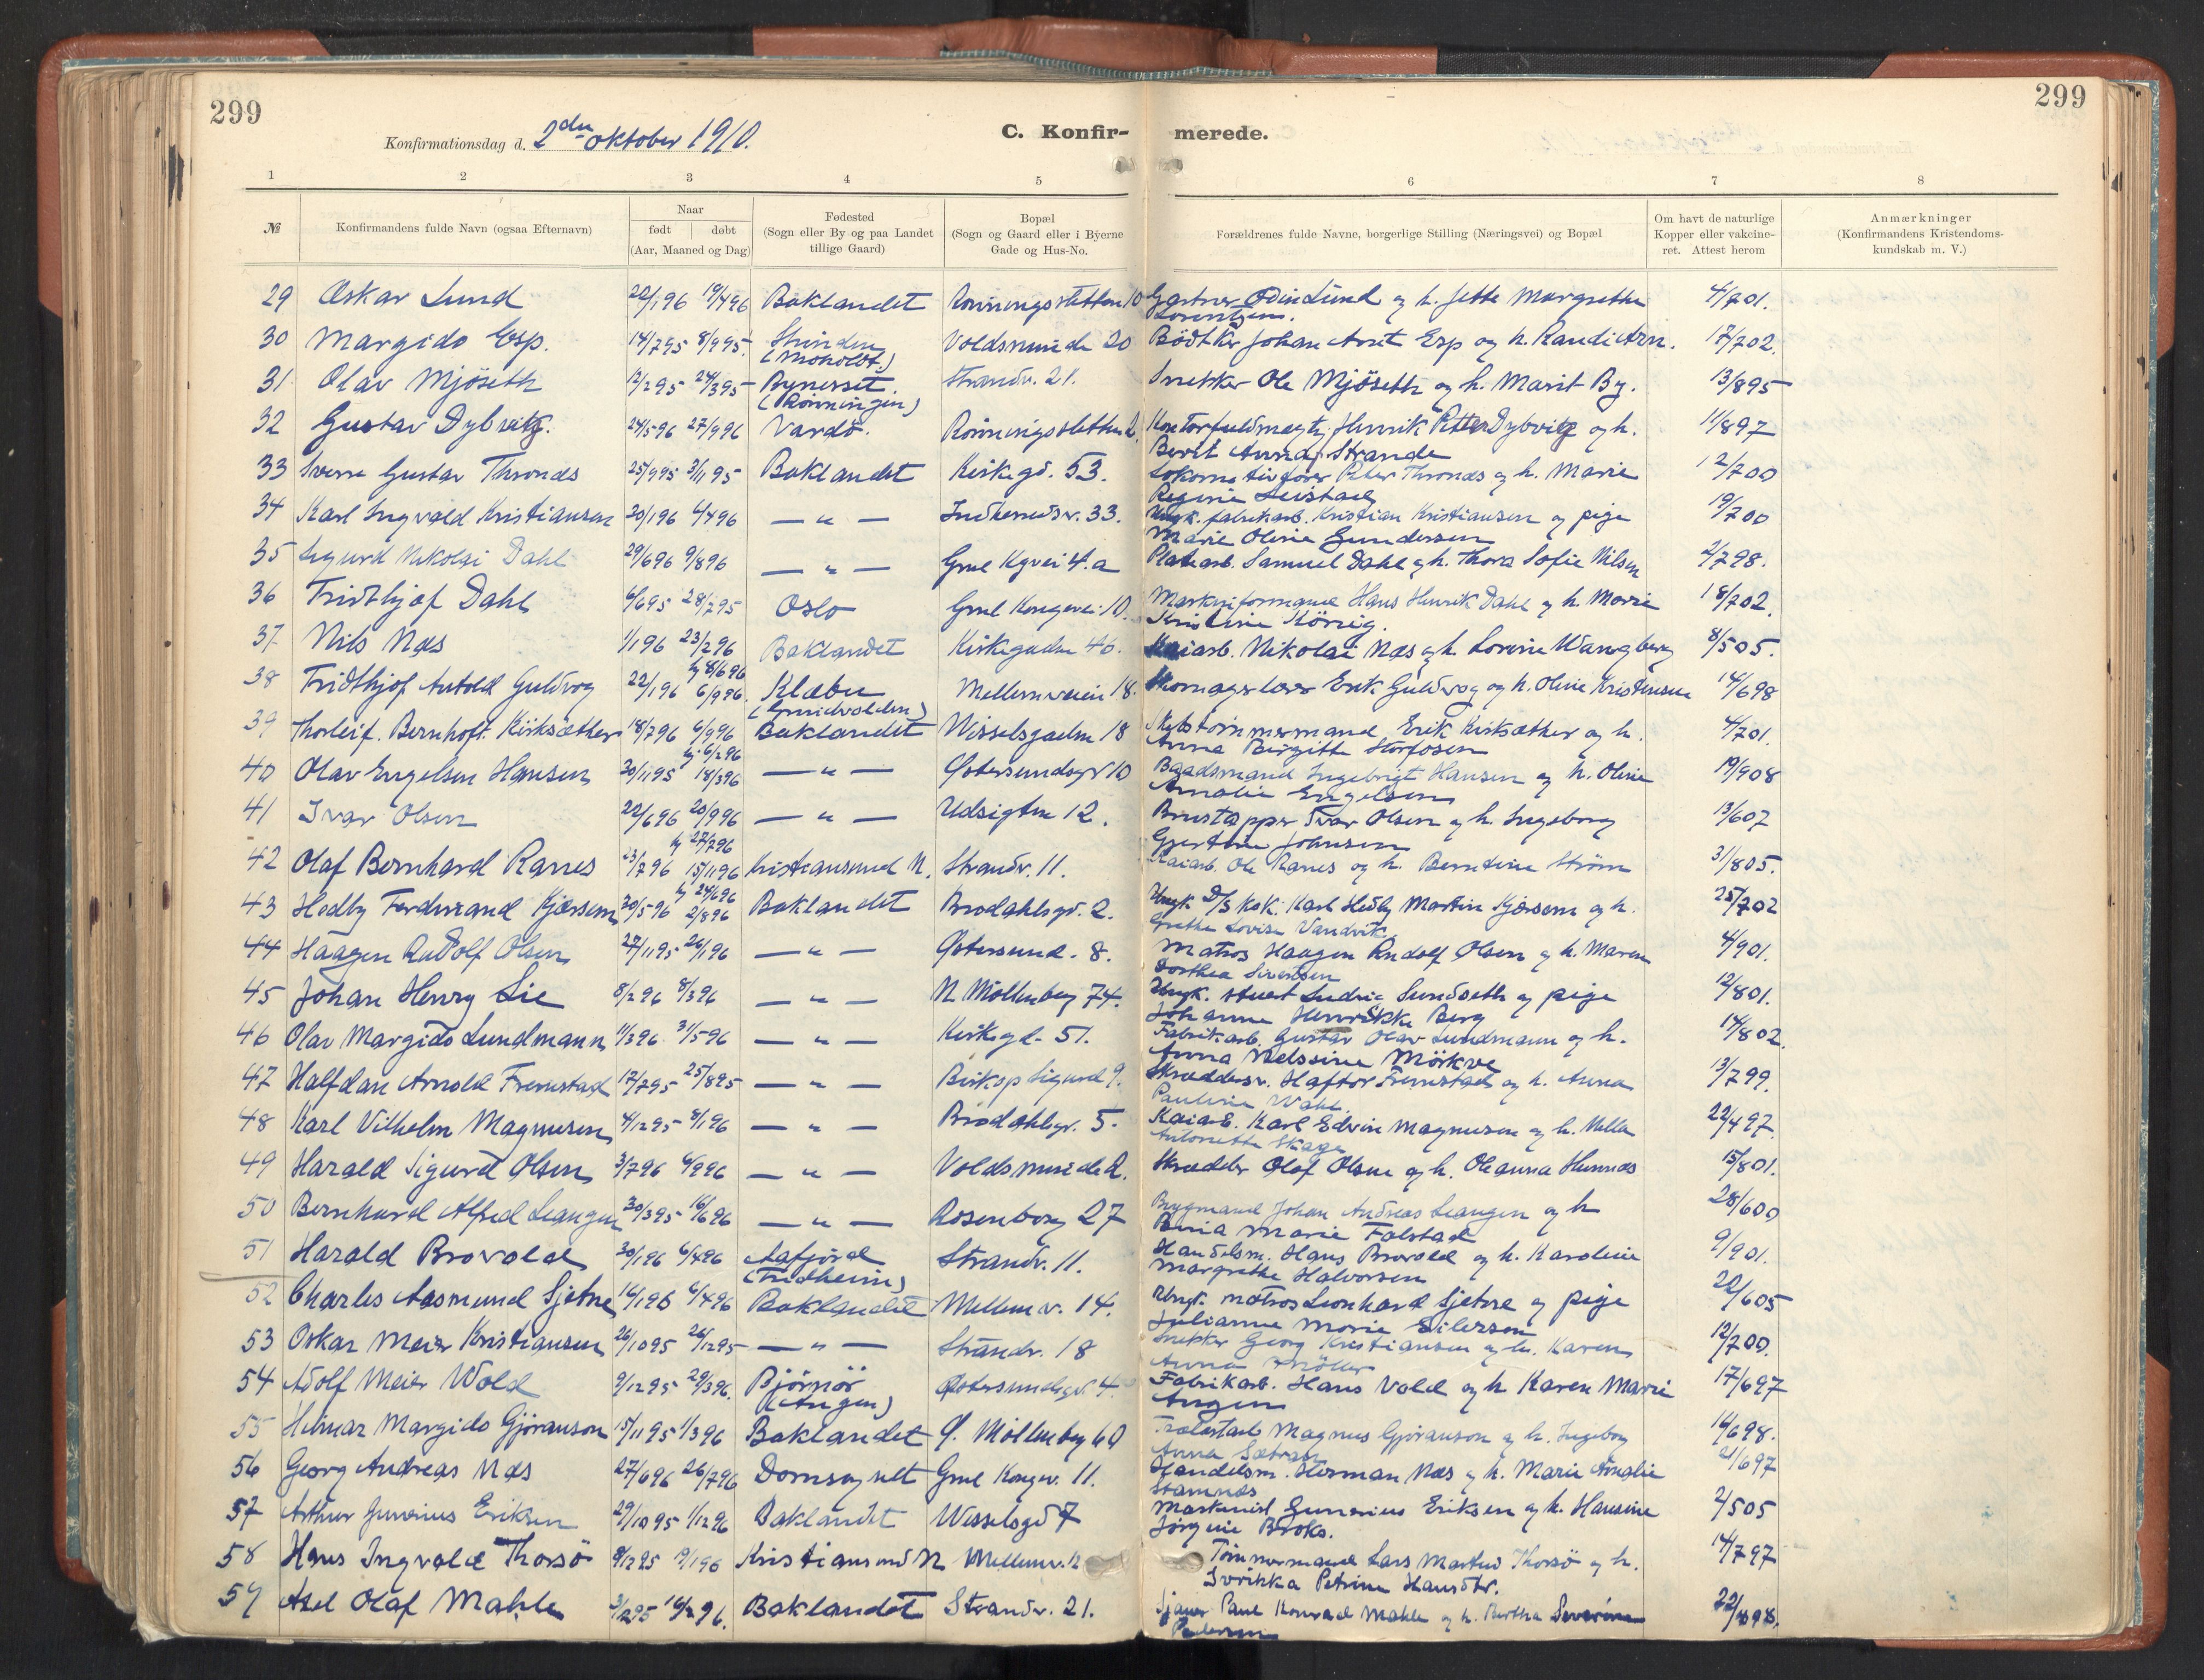 299
299
Konfirmationsdag d. 2den oktober 1910.
C. Konfir-
merede.
1 2 3 4 5 6 7 8
№ Konfirmandens fulde Navn (ogsaa Efternavn) Naar født døbt (Aar, Maaned og Dag) Fødested (Sogn eller By og paa Landet tillige Gaard) Bopæl (Sogn og Gaard eller i Byerne Gade og Hus-No. Forældrenes fulde Navne, borgerlige Stilling (Næringsvei) og Bopæl Om havt de naturlige Kopper eller vakcineret. Attest herom Anmærkninger (Konfirmandens Kristendomskundskab m. V.)
29 Oskar Lund 22/1 96 19/4 96 Baklandet Rönningsletten 10 Gartner Odin Lund og h. Jette Margrethe 4/7 01.
Lorentzen.
30 Margido Esp. 14/7 95 8/9 95. Strinden (Moholdt.) Voldsminde 20 Bödtker Johan Arnt Esp og h. Randi Arn. 17/7 02.
31 Olav Mjöseth 12/2 95 24/3 95 Bynesset. (Rönningen) Strandv. 21. Snekker Ole Mjöseth og h. Marit By. 13/8 95
32 Gustav Dybvig. 24/5 96 27/9 96 Vardö. Rönningsletten 2. Kontorfuldmægtig Henrik Petter Dybvig og h. 11/8 97
Berit Anna Strande
33 Sverre Gustav Thronæs 25/9 95 3/11 95 Baklandet Kirkegd. 53. Lokomotivförer Peter Thronæs og h. Marie 12/7 00
Regine Leistad
34 Karl Ingvald Kristiansen 20/1 96 4/4 96 — " — Indherredsv. 33. Ungk. fabrikarb. Kristian Kristiansen og pige 19/7 00
Marie Oline Gundersen
35 Sigurd Nikolai Dahl 29/6 96 9/8 96 — " — Gml Kgvei 4.a Platarb. Samuel Dahl og h. Thora Sofie Nilsen 2/7 98.
36 Fridthjof Dahl 6/6 95 28/7 95 Oslo Gml Kongevei 10. Maskinformand Hans Henrik Dahl og h. Marie 18/7 02.
Kristine König.
37 Nils Næs 1/1 96 23/2 96 Baklandet Kirkegaden 46. Kaiarb. Nikolai Næs og h. Lovise Wangberg 8/5 05.
38 Fridthjof Antold Guldvog 22/1 96 hj 8/6 96 6/9 96. Klæbu Mellemveien 18. Skomagerlærer Erik Guldvog og h. Oline Kristensen 14/6 98
39 Thorleif Bernhoft Kirksæther 18/7 96 6/9 96 Baklandet Wisselsgaden 18 Skibstömmermand Erik Kirksæther og h. 4/7 01.
Anna Birgitte Storfosen
40 Olav Engelsen Hansen 20/11 95 hj. 6/2 96 18/3 96 — " — Østersundsgd 10 Baadsmand Ingebrigt Hansen og h. Oline 19/9 08
Amalie Engelsen
41 Ivar Olsen 22/6 96 20/9 96 — " — Udsigten 12. Brustapper Ivar Olsen og h. Ingeborg 13/6 07
Gjertine Johansen
42 Olaf Bernhard Ranes 23/7 96 hj 27/7 96 15/11 96 Kristiansund N. Strandv. 11. Kaiarb. Ole Ranes og h. Berntine Ström 31/8 05.
43 Hedly Ferdinand Kjærsem 30/5 96 hj 24/6 96 2/8 96 Baklandet Brodahlsgd. 2. Ungk D/S kok. Karl Hedly Martin Kjærsem og h. 25/7 02
Grethe Lovise Vandvik.
44 Haagen Rudolf Olsen 27/11 95 26/1 96 — " — Østersund. 8. Matros Haagen Rudolf Olsen og h. Maren 4/9 01.
Dorthea Sivertsen
45 Johan Henry Lie 8/2 96 8/3 96 — " — N Möllenberg 74. Ungk. stuert Ludvig Sundseth og pige 12/8 01.
Johanne Henrikke Berg
46 Olav Margido Lundmann 11/3 96 31/5 96 — " — Kirkegd. 51. Fabrikarb. Gustav Olav Lundmann og h. 14/8 02.
Anna Nelssine Mörkve
47 Halfdan Arnold Fremstad 17/7 95 25/8 95 — " — Biskop Sigurd 9. Skræddersv. Haftor Fremstad og h. Anna 13/7 99.
Pauline Wahl.
48 Karl Vilhelm Magnusen 4/12 95 8/1 96 — " — Brodahlsgr. 5. Kaiarb. Karl Edvin Magnusen og h. Milla 22/4 97.
Antonette Skage
49 Harald Sigurd Olsen 3/7 96 6/9 96 — " — Voldsminde 2. Skrædder Olaf Olsen og h. Oleanna Hunnæs 15/8 01.
50 Bernhard Alfred Leangen 30/3 95 16/6 96 — " — Rosenborg 27 Brygmand Johan Andreas Leangen og h 28/6 00
Penia Marie Falstad
51 Harald Brovold 30/1 96 6/4 96 Aafjord (Fridheim) Strandv. 11. Handelsm. Hans Brovold og h. Karoline 9/9 01.
Margrethe Halvorsen
52 Charles Aasmund Sjetne 16/1 96 6/4 96 Baklandet Mellemv. 14. Ungk. matros Leonhard Sjetne og pige 20/6 05
Julianne Marie Eilersen
53 Oskar Meier Kristiansen 26/10 95 26/12 95 — " — Strandv. 18 Snekker Georg Kristiansen og h. Karen 12/7 00.
Anna Möller
54 Adolf Meier Wold 9/12 95 29/3 96. Björnör (Angen) Østersundsgd 4. Fabrikarb. Hans Vold og h Karen Marie 17/6 97
Angen
55 Helmar Margido Gjöranson 15/11 95 1/3 96 Baklandet Ø. Möllenberg 60 Trælastarb Magnus Gjöranson og h. Ingeborg 16/6 98.
Anna Sætran
56 Georg Andreas Næs 27/6 96 26/7 96 Domsognet Gml Kongev. 11. Handelsm. Herman Næs og h. Marie Amalie 21/6 97
Stamnæs
57 Arthur Gunerius Eriksen 29/10 95 1/12 96 Baklandet Wisselsgd 7 Maskinist Gunerius Eriksen og h. Hansine 2/5 05
Jörgine Broks.
58 Hans Ingvald Thorsö 8/12 95 19/1 96 Kristiansund N Mellemv. 12 Tömmermand Lars Martin Thorsö og h. 14/7 97
Petrine Hansdtr.
59 Axel Olaf Mahle 3/12 95 16/2 96. Baklandet Strandv. 21. Sjauer Paul Konrad Mahle og h. Bertha Severine 22/8 98.
Pedersen